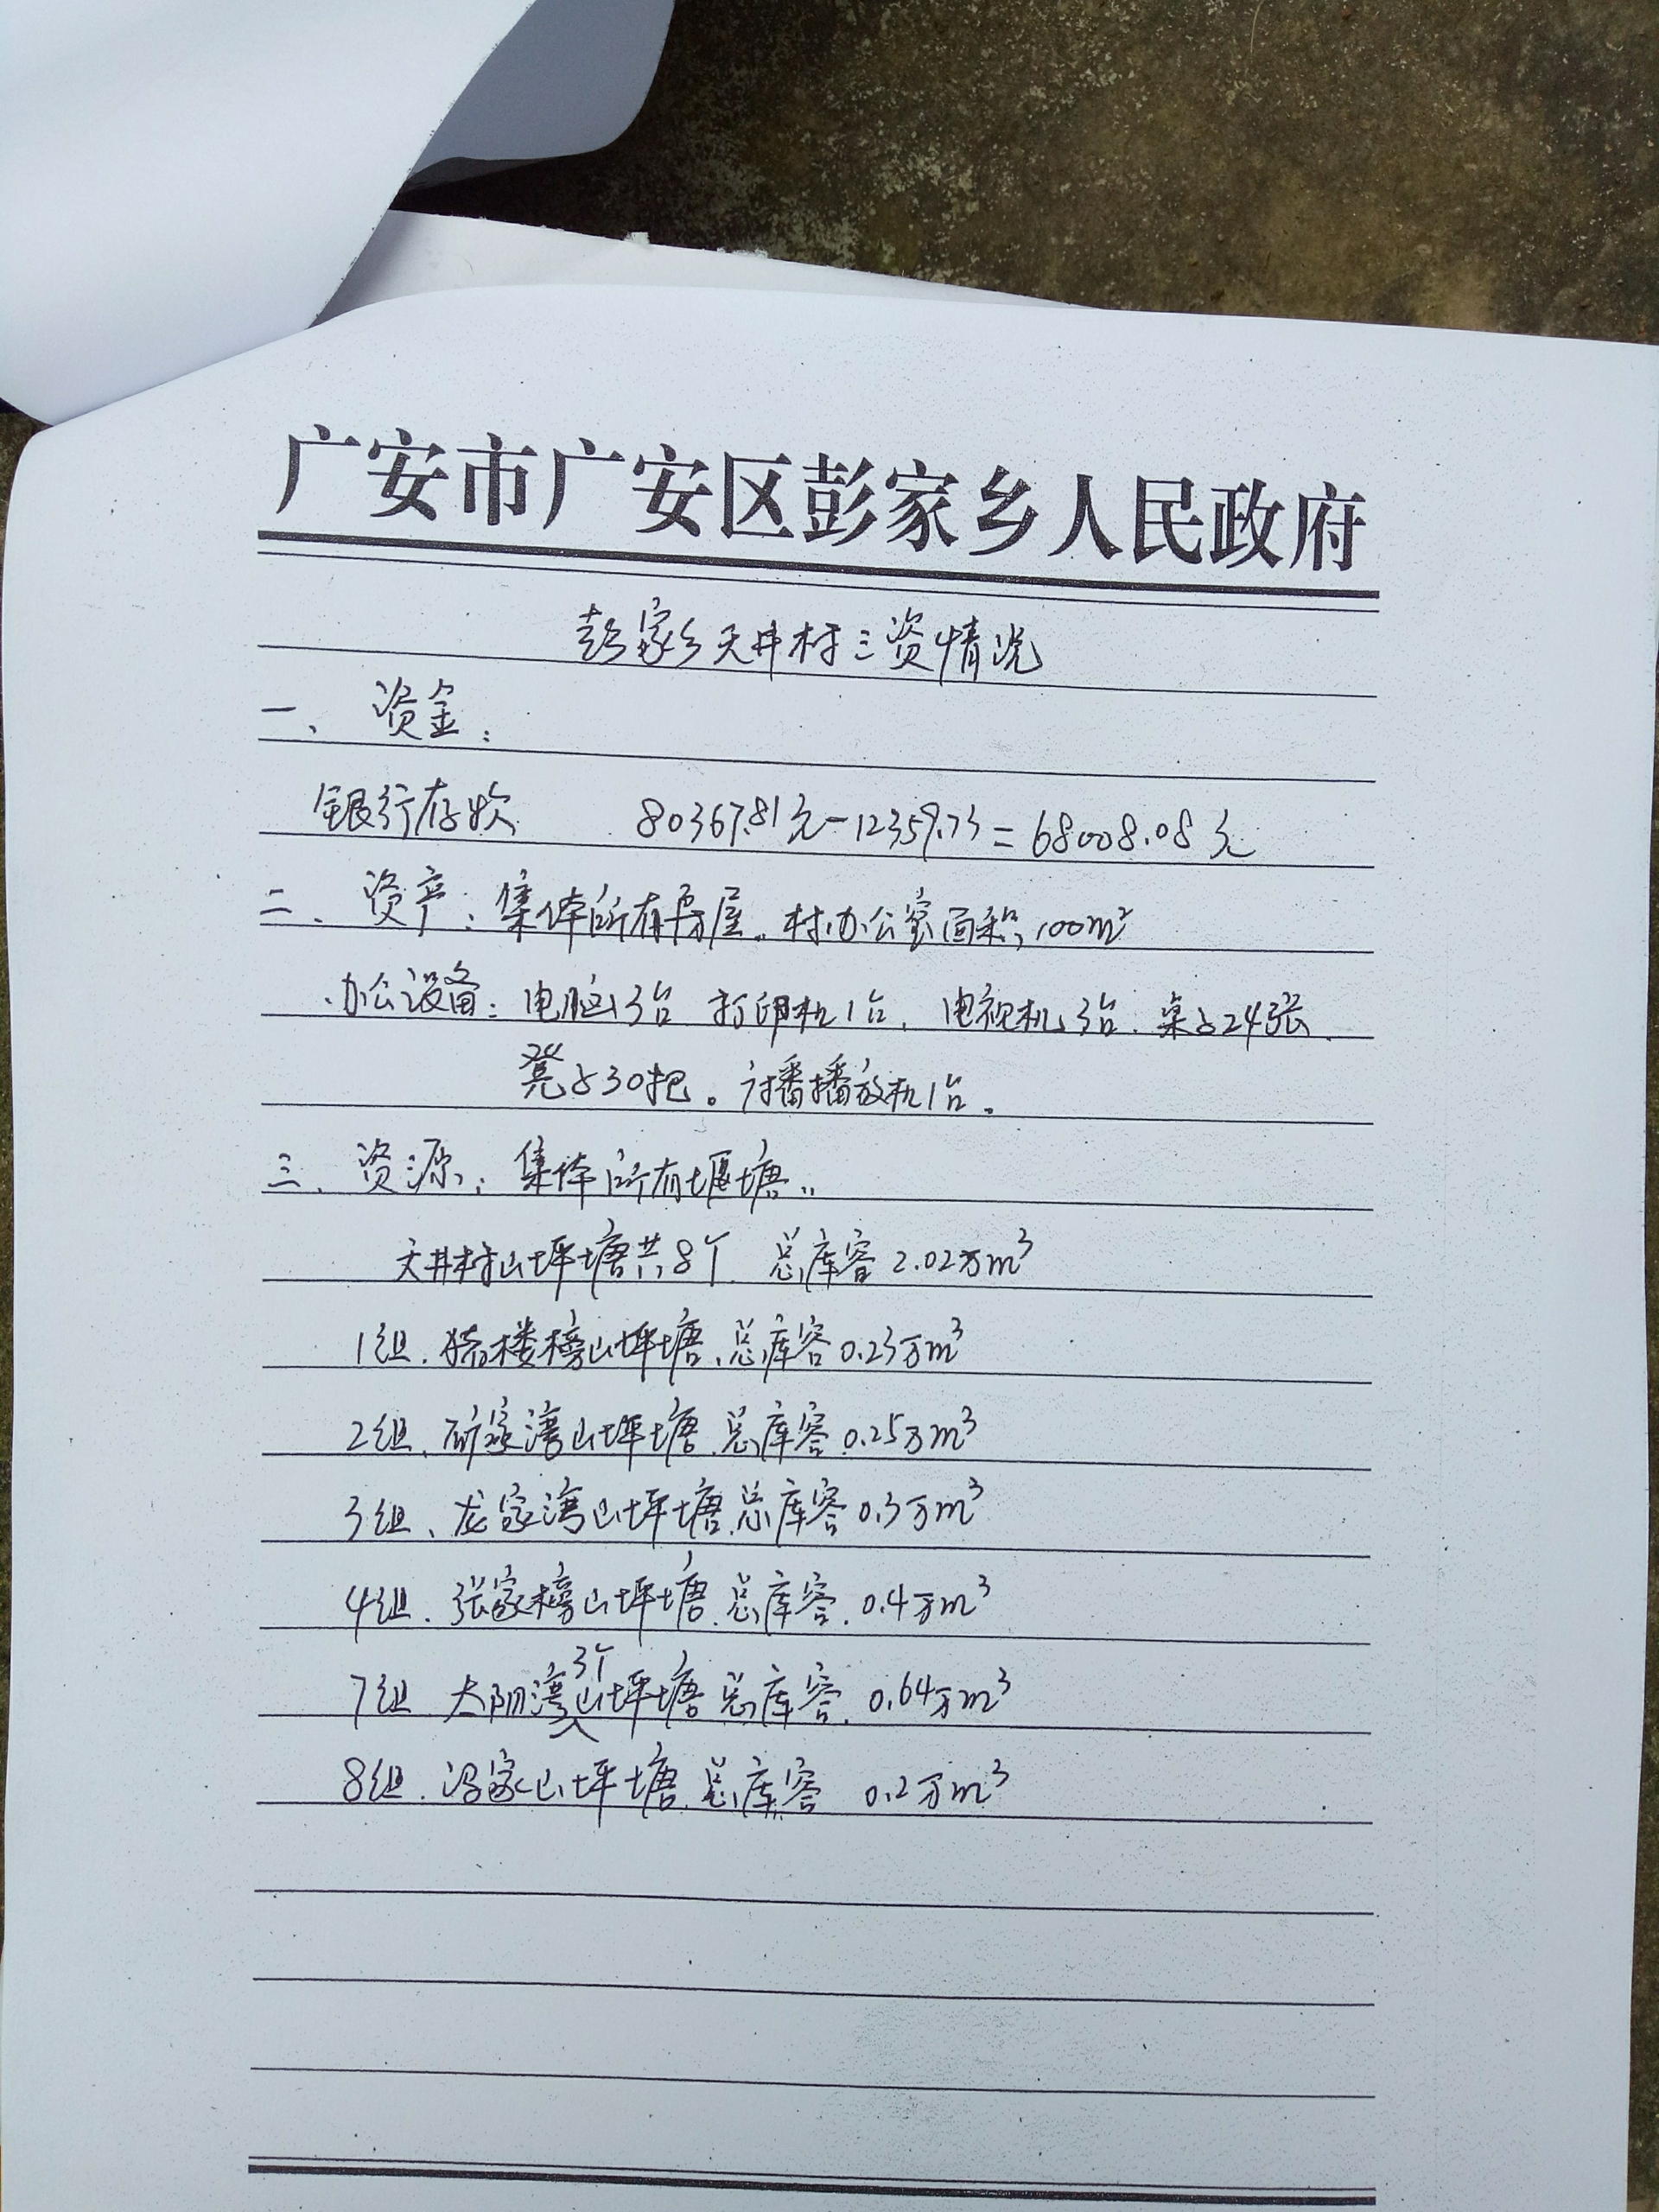 广安市广安区彭家乡人民政府
彭家乡天井村三资情况
一、资金:
银行存款 80367.81元-12359.73=68008.08元
二、资产:集体所有房屋。村办公室面积100m²
办公设备:电脑3台 打印机1台、电视机3台.桌子24张、
凳子30把。广播播放机1台。
三、资源:集体所有堰塘。
天井村山坪塘共8个 总库容2.02万m³
1组.楼榜山坪塘.总库容0.23万m³
2组、家湾山坪塘.总库容0.25万m³
3组、龙家湾山坪塘.总库容0.3万m³
4组.张家榜山坪塘.总库容.0.4万m³
7组 太阳湾3个山坪塘总库容.0.64万m³
8组.冯家山坪塘.总库容 0.2万m³